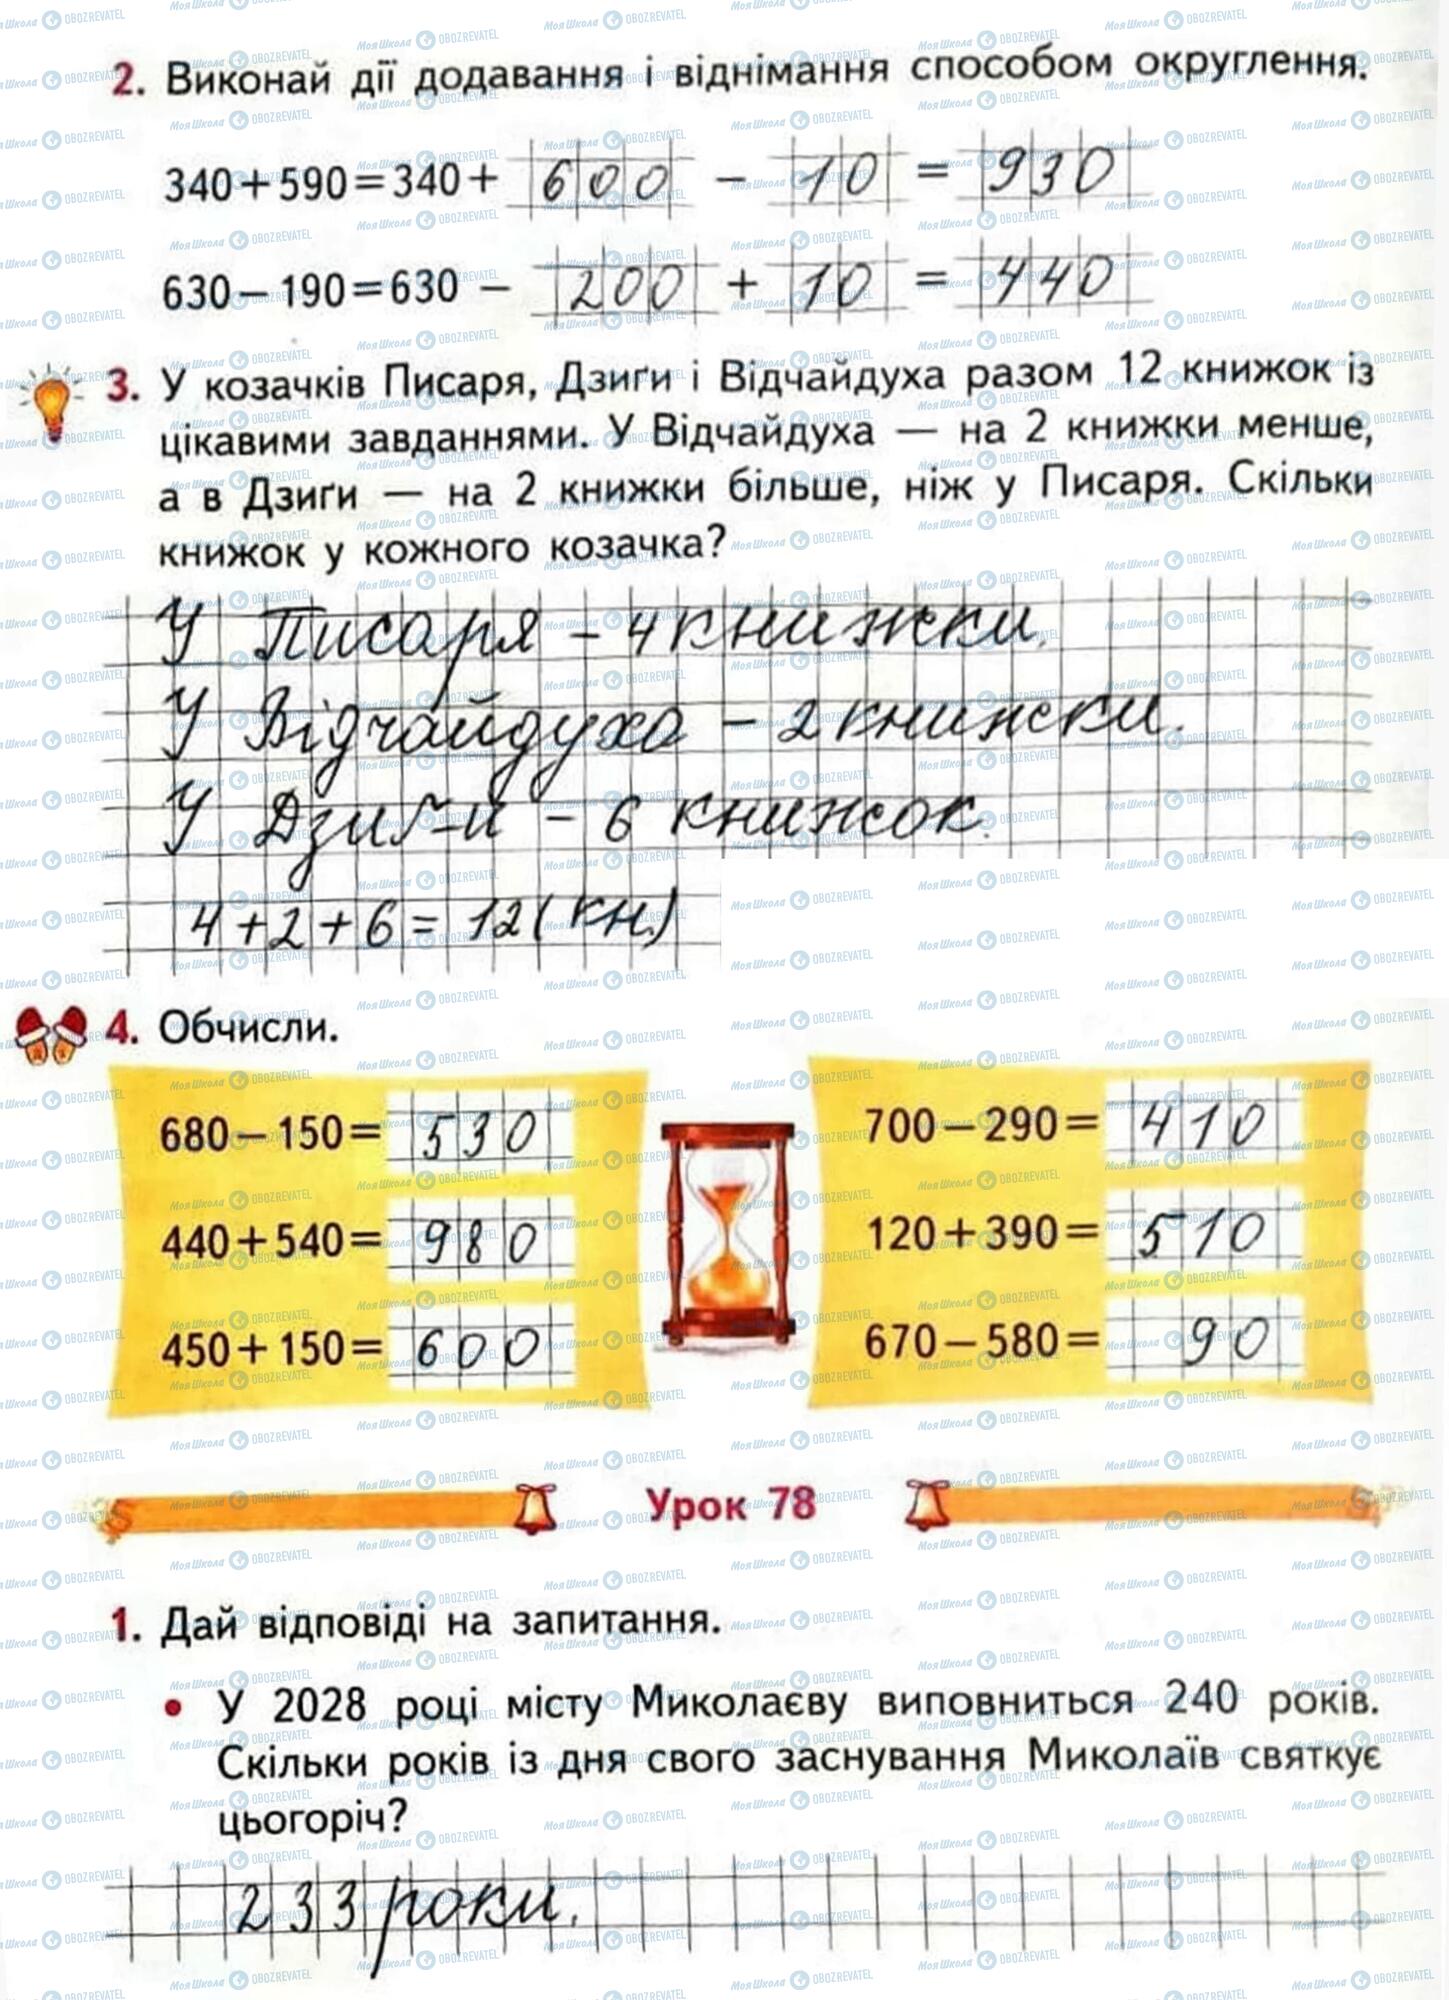 2. Виконай дії додавання і віднімання способом округлення.
340+590=340+ 600 − 10 = 930
630−190=630 − 200 + 10 = 440
3. У козачків Писаря, Дзиґи і Відчайдуха разом 12 книжок із
цікавими завданнями. У Відчайдуха — на 2 книжки менше,
а в Дзиґи — на 2 книжки більше, ніж у Писаря. Скільки
книжок у кожного козачка?
У Писаря – 4 книжки.
У Відчайдуха – 2 книжки.
У Дзиґи – 6 книжок.
4+2+6=12(кн.)
4. Обчисли.
680−150= 530
700−290= 410
440+540= 980
120+390= 510
450+150= 600
670−580= 90
Урок 78
1. Дай відповіді на запитання.
• У 2028 році місту Миколаєву виповниться 240 років.
Скільки років із дня свого заснування Миколаїв святкує
цьогоріч?
233 роки.
Моя Школа OBOZREVATEL